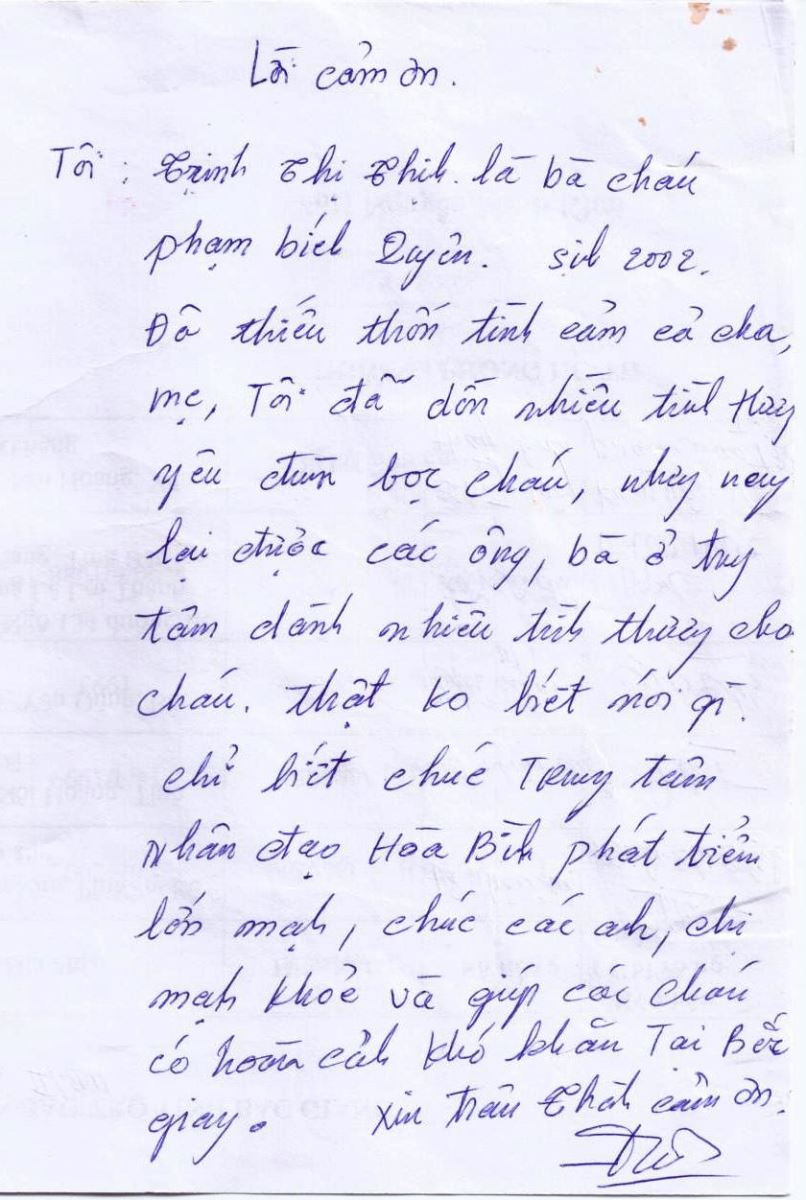 Lời cảm ơn.
Tôi: Trịnh Thị Thịh. là bà cháu
phạm bích Quyên. sinh 2002.
Đo thiếu thốn tình cảm cả cha,
mẹ, Tôi đã dồn nhiều tình thương
yêu đùm bọc cháu, nhưng nay
lại được các ông, bà ở trung
tâm dành nhiều tình thương cho
cháu. thật ko biết nói gì.
chỉ biết chúc Trung tâm
Nhân đạo Hòa Bình phát triển
lớn mạnh, chúc các anh, chị
mạnh khỏe và giúp các cháu
có hoàn cảnh khó khăn Tại Bắc
giang. Xin trân thành cảm ơn.